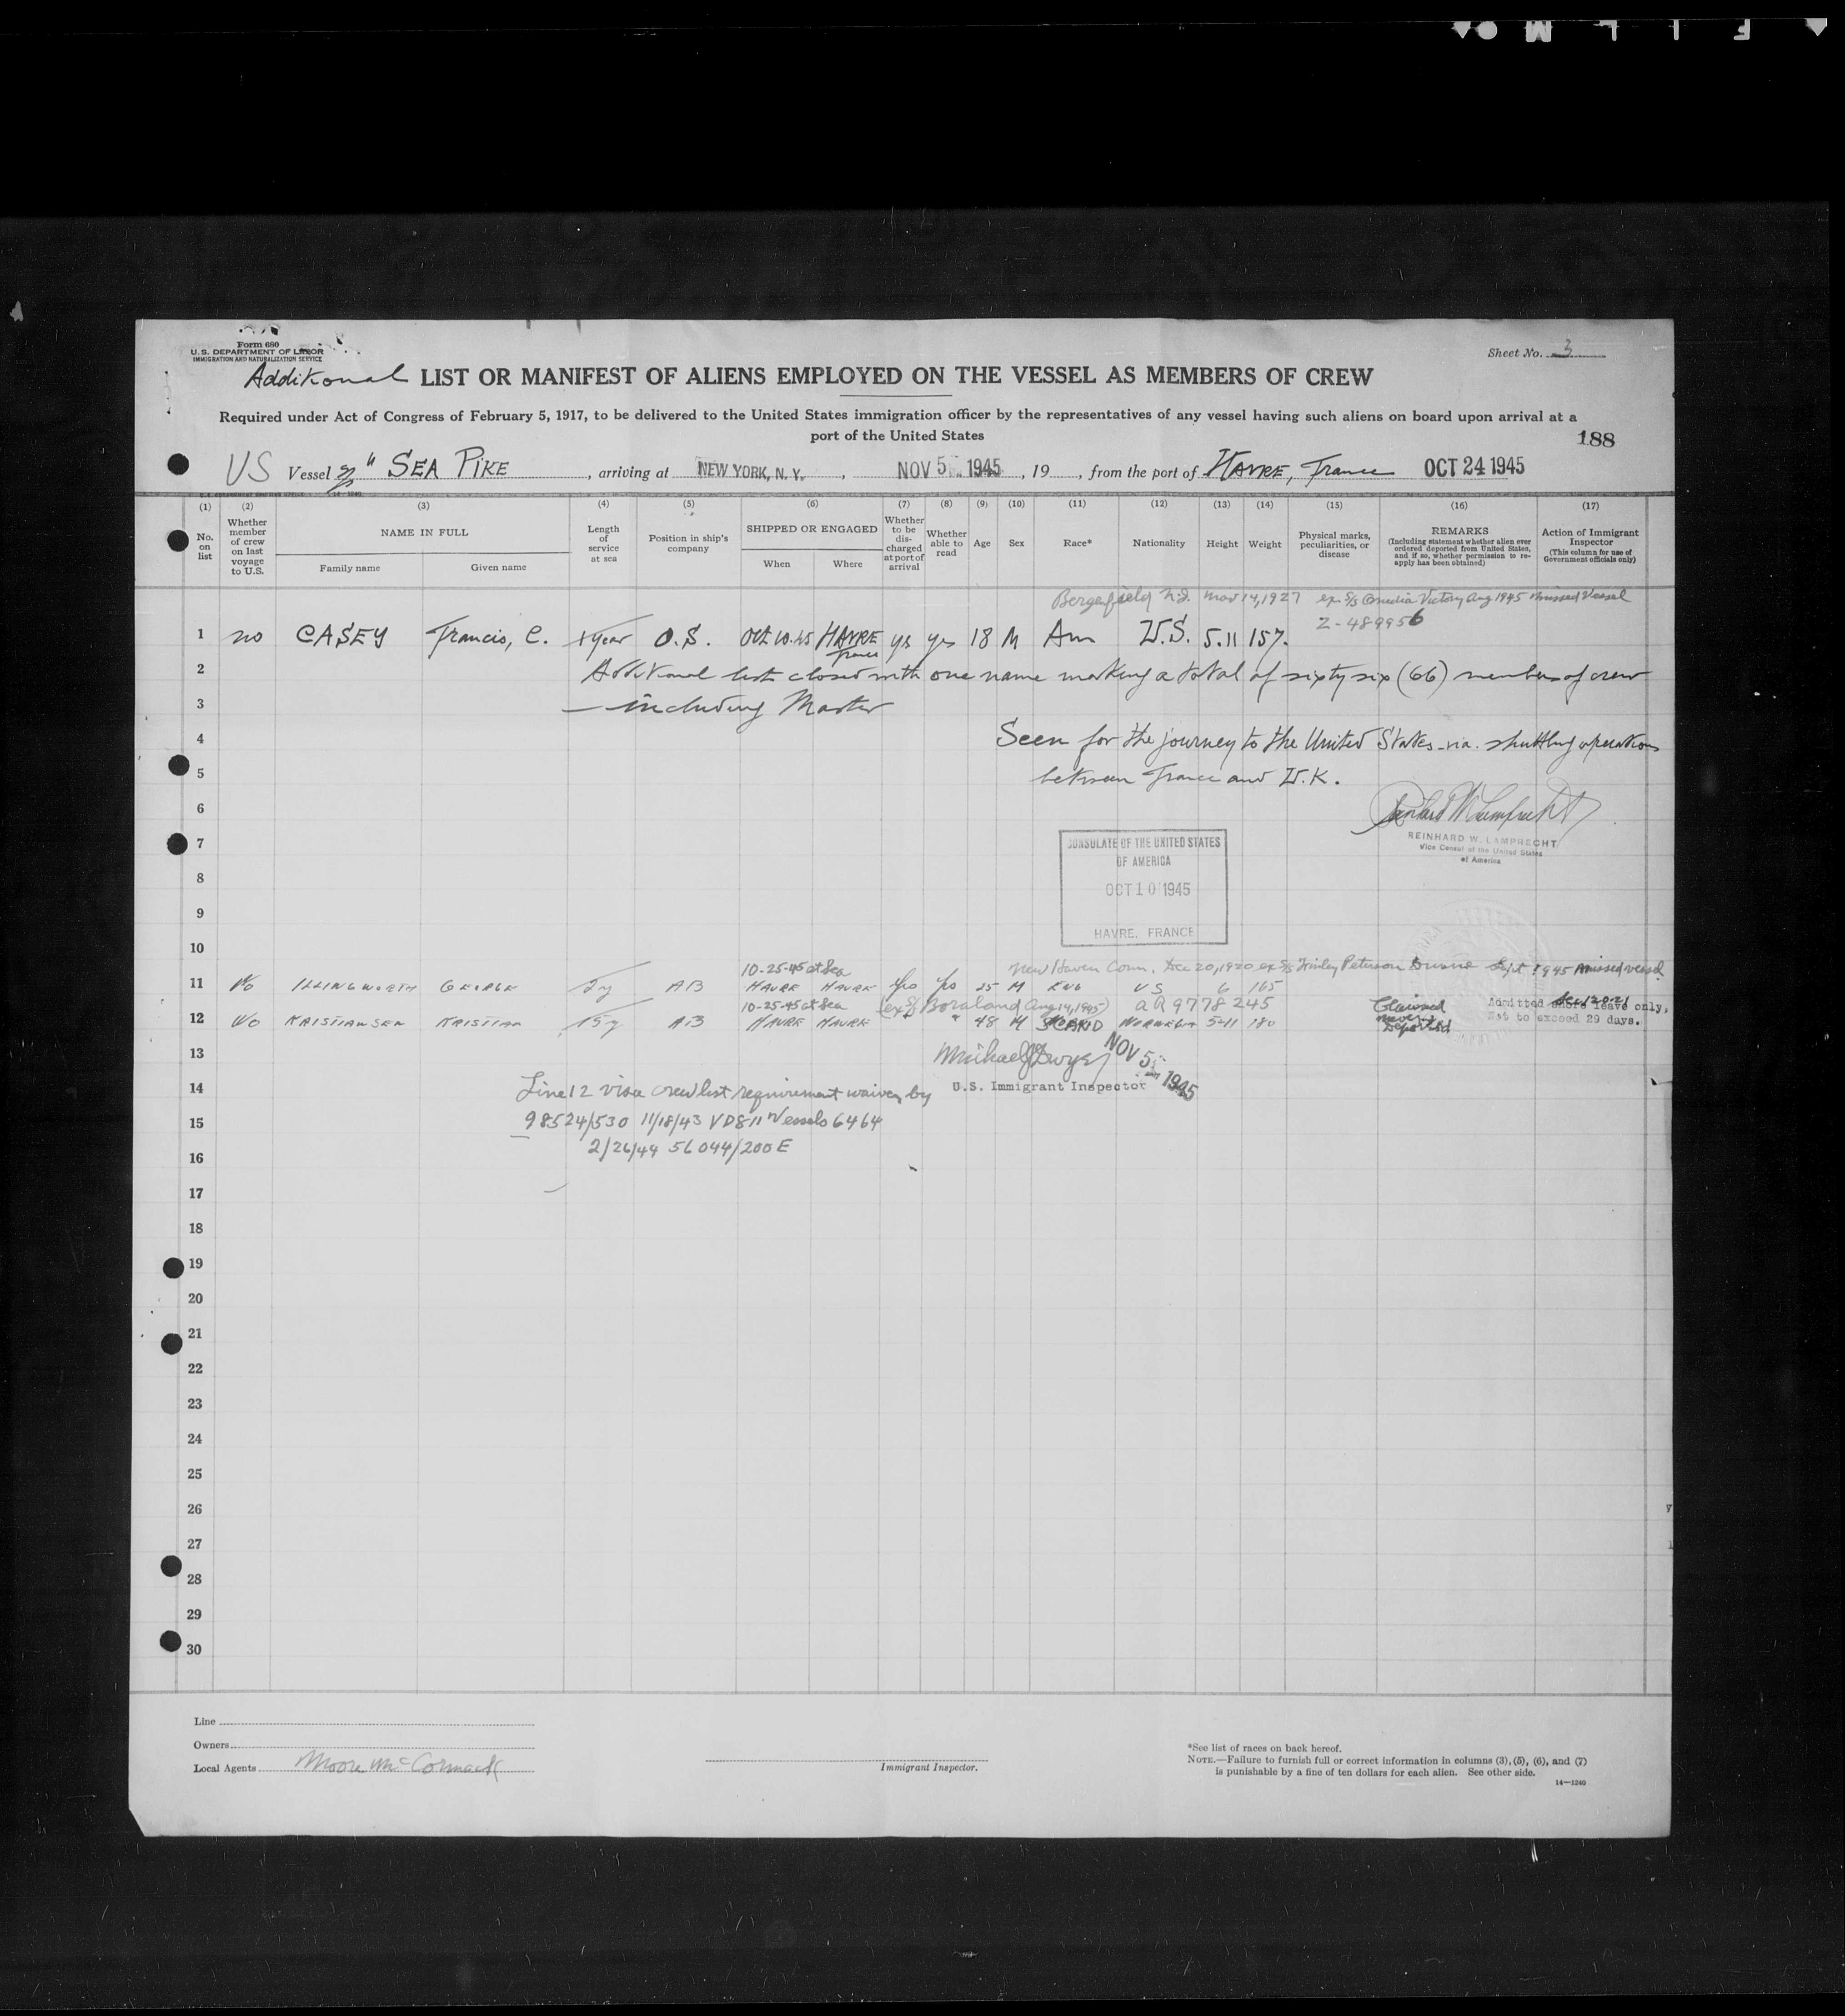 FILM
Form 680
U. S. DEPARTMENT OF LABOR
IMMIGRATION AND NATURALIZATION SERVICE
Sheet No. 3
Additional LIST OR MANIFEST OF ALIENS EMPLOYED ON THE VESSEL AS MEMBERS OF CREW
Required under Act of Congress of February 5, 1917, to be delivered to the United States immigration officer by the representatives of any vessel having such aliens on board upon arrival at a
port of the United States
188
US Vessel S/S "SEA PIKE , arriving at NEW YORK, N. Y. , NOV 5 1945 , 19 , from the port of HAVRE, France OCT 24 1945
(1) (2) (3) (4) (5) (6) (7) (8) (9) (10) (11) (12) (13) (14) (15) (16) (17)
No. on list
Whether member of crew on last voyage to U.S.
NAME IN FULL
Family name Given name
Length of service at sea
Position in ship's company
SHIPPED OR ENGAGED
When Where
Whether to be discharged at port of arrival
Whether able to read
Age
Sex
Race*
Nationality
Height
Weight
Physical marks, peculiarities, or disease
REMARKS
(Including statement whether alien ever ordered deported from United States, and if so, whether permission to re-apply has been obtained)
Action of Immigrant Inspector
(This column for use of Government officials only)
Bergenfield N.J. Nov 14, 1927 ex S/S Victory Aug 1945 missed vessel
Z-489956
1 no CASEY Francis, C. 1 year O.S. Oct 10.45 HAVRE France yes yes 18 M Am U.S. 5.11 157.
2 Additional list closed with one name making a total of sixty six (66) members of crew
3 — including Master
4 Seen for the journey to the United States via. shuttling operations
5 between France and U.K.
6
REINHARD W. LAMPRECHT
Vice Consul of the United States
of America
7 CONSULATE OF THE UNITED STATES
OF AMERICA
8 OCT 10 1945
9 HAVRE, FRANCE
10
10-25-45 at Sea New Haven Conn. Dec 20, 1920 ex S/S Finley Peterson Dunne Sept 1945 missed vessel
11 No ILLINGWORTH GEORGE AB HAVRE HAVRE yes yes 25 M ENG US 6 165
10-25-45 at Sea (ex S/S Boraland Aug 14, 1945) 9778245
12 No KRISTIANSEN KRISTIAN 15y AB HAVRE HAVRE " 48 M SCAND NORWEGN 5-11 180 Claimed never deported Admitted shore leave only,
Not to exceed 29 days.
13 Michael J Dwyer NOV 5 1945
14 U.S. Immigrant Inspector
Line 12 visa crew list requirement waived by
15 98524/530 11/18/43 VD811 Vessels 6464
16 2/26/44 56044/200E
17
18
19
20
21
22
23
24
25
26
27
28
29
30
Line
Owners
Local Agents Moore McCormack
Immigrant Inspector.
*See list of races on back hereof.
NOTE.—Failure to furnish full or correct information in columns (3), (5), (6), and (7)
is punishable by a fine of ten dollars for each alien. See other side.
14—1240